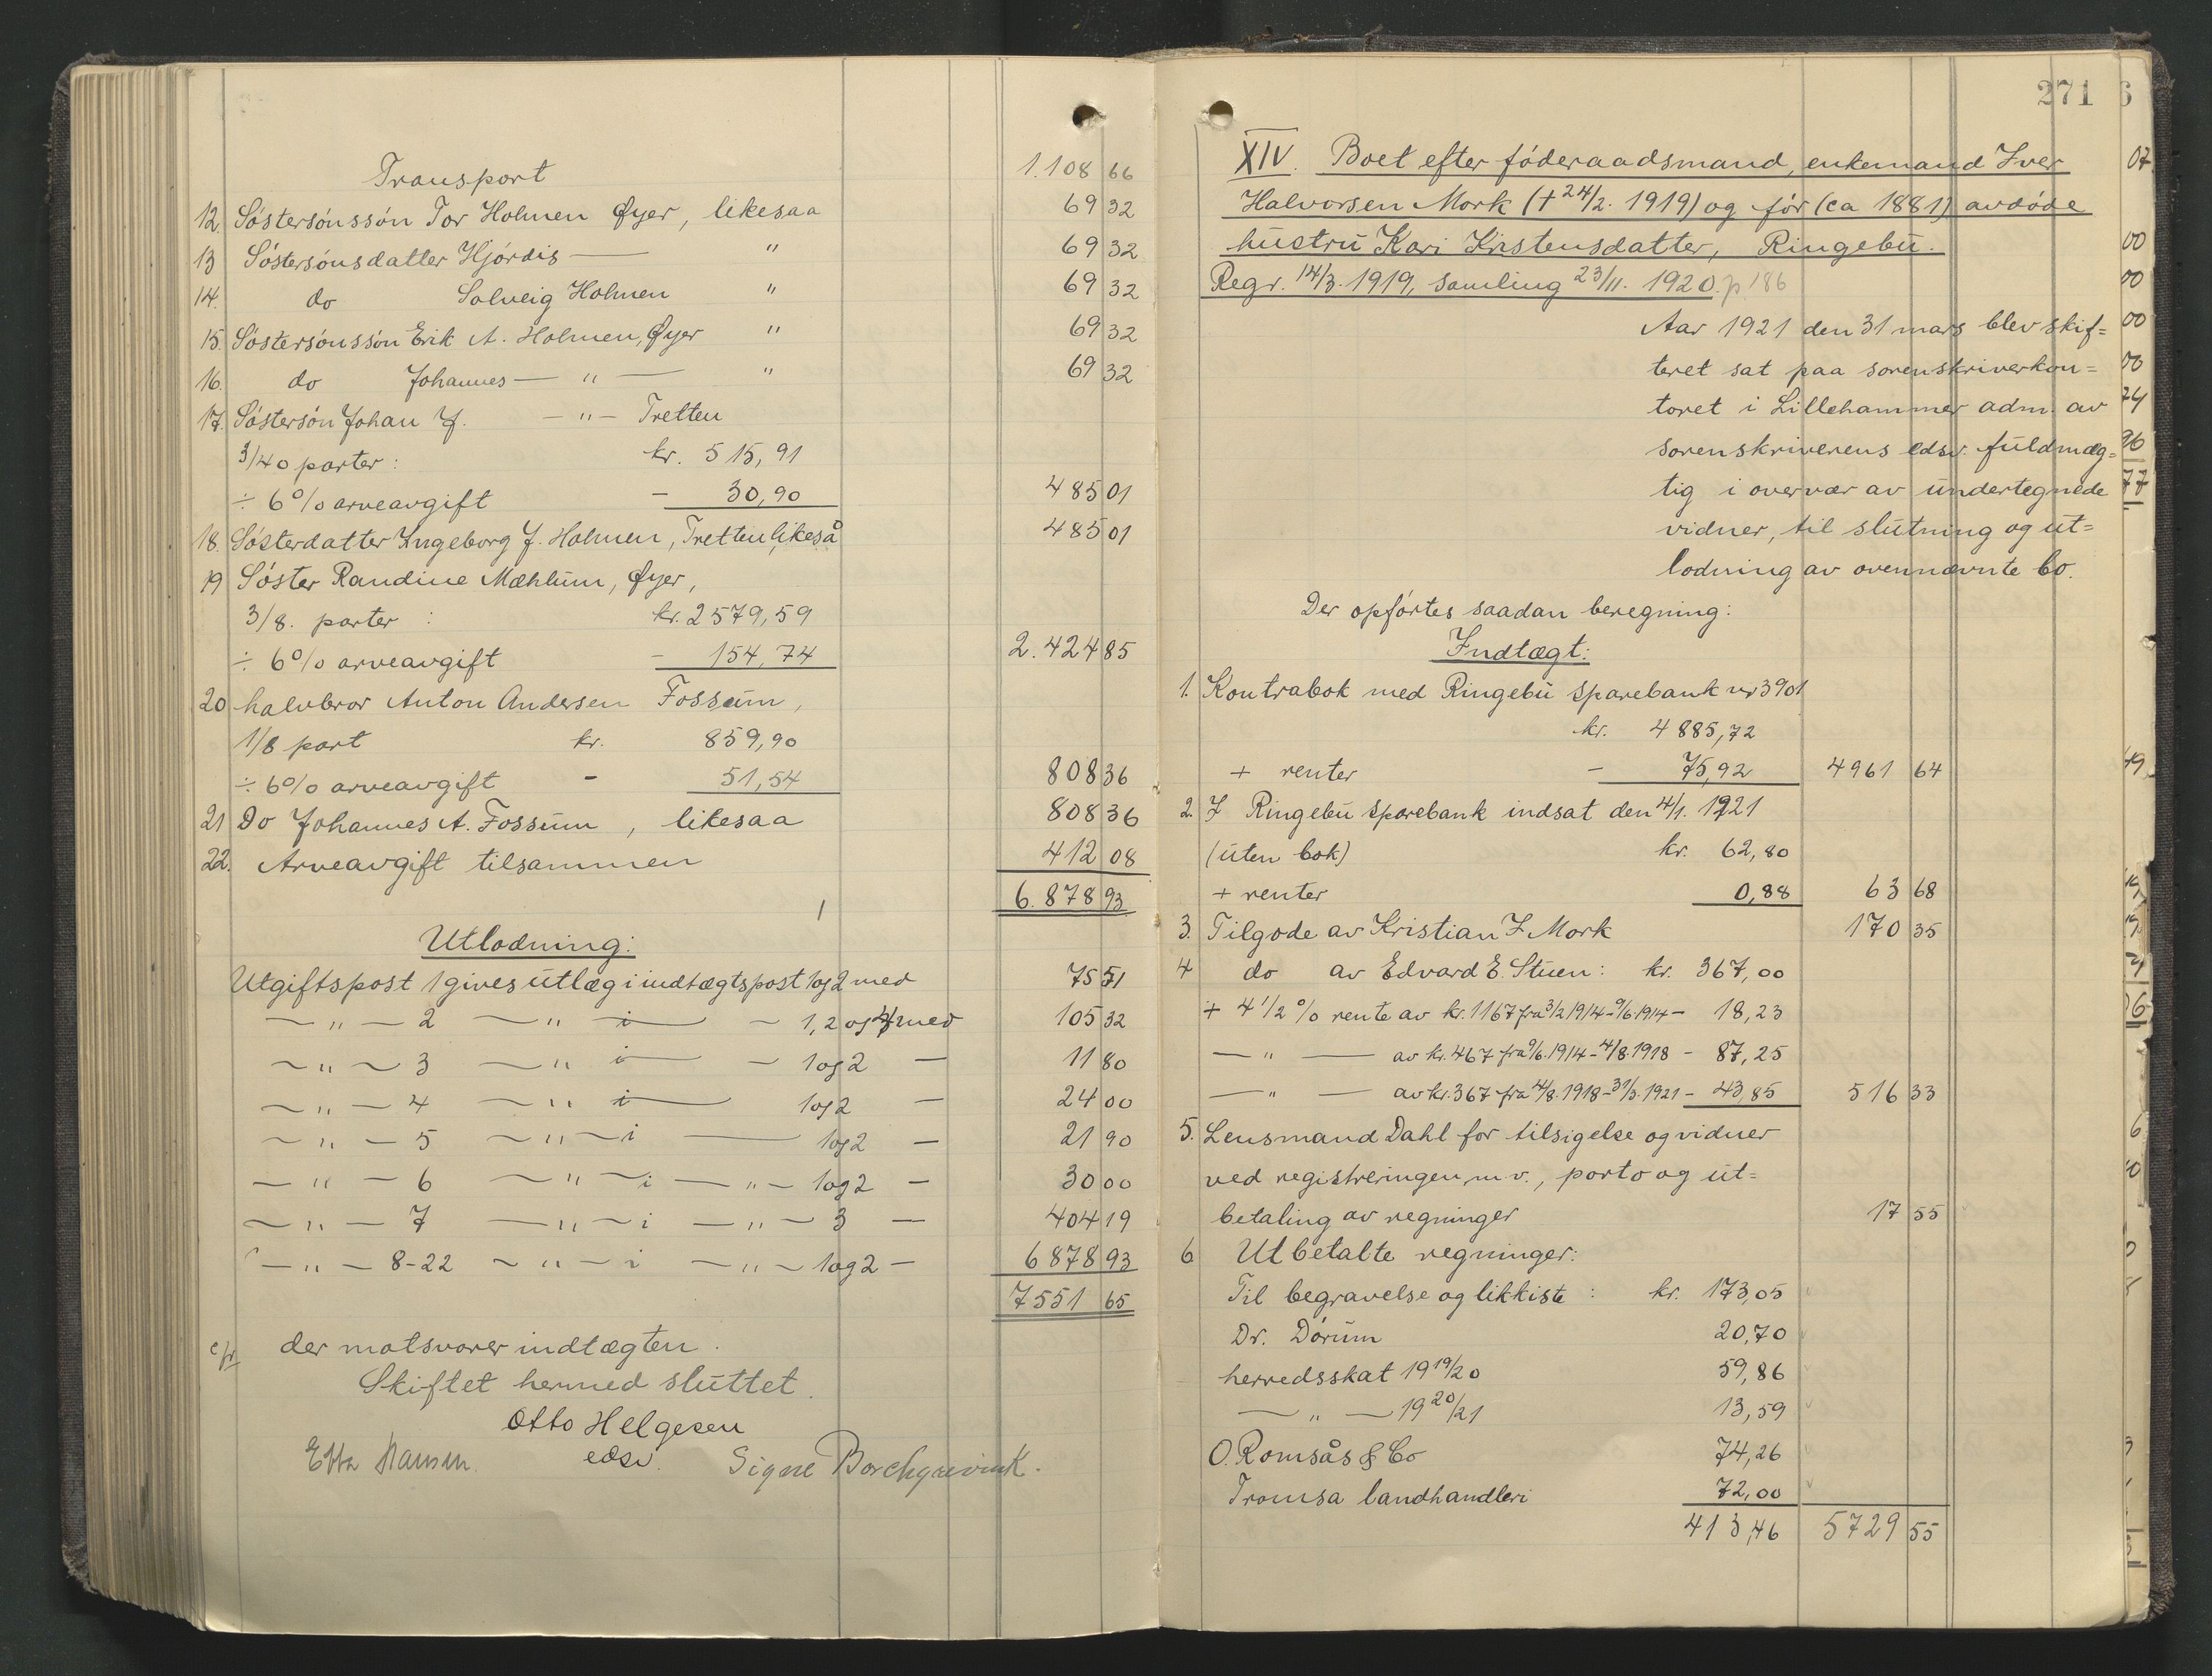 Transport 1.108 66
12. Söstersönssön Tor Holmen Øyer, likesaa 69 32
13 Söstersönsdatter Hjördis — " 69 32
14. do Solveig Holmen " 69 32
15. Söstersönssön Erik A. Holmen, Øyer " 69 32
16. do Johannes — " — " 69 32
17. Söstersön Johan J. — " — Tretten
3/40 parter: kr. 515,91
÷ 6% arveavgift - 30,90 485 01
18. Sösterdatter Ingeborg J. Holmen, Tretten, likeså 485 01
19 Söster Randine Mæhlum, Øyer,
3/8. parter : kr. 2579,59
÷ 6% arveavgift - 154,74 2.424 85
20 halvbror Anton Andersen Fossum,
1/8 part kr. 859,90
÷ 6% arveavgift - 51,54 808 36
21 Do Johannes A. Fossum, likesaa 808 36
22. Arveavgift tilsammen 412 08
6.878 93
Utlodning:
Utgiftspost 1 gives utlæg i indtægtspost 1 og 2 med 75 51
— " — 2 — " i — - 1, 2 og 4 med 105 32
— " — 3 — " i — - 1 og 2 — 11 80
— " — 4 — " i — 1 og 2 — 24 00
— " — 5 — " — i — 1 og 2 — 21 90
— " — 6 — " — i — " — 1 og 2 — 30 00
— " — 7 — " — i — " — 3 — 404 19
— " — 8-22 — " — i — " — 1 og 2 — 6878 93
7551 65
cfr der motsvarer indtægten.
Skiftet hermed sluttet.
Otto Helgesen
edsv.
Etta Hansen. Signe Borchgrevink.
271
XIV. Boet efter föderaadsmand, enkemand Iver
Halvorsen Mork († 24/2. 1919) og för (ca 1881) avdöde
hustru Kari Kristensdatter, Ringebu.
Regr. 14/3. 1919, samling 23/11. 1920. p. 186
Aar 1921 den 31 mars blev skif=
teret sat paa sorenskriverkon=
toret i Lillehammer adm. av
sorenskriverens edsv. fuldmæg=
tig i overvær av undertegnede
vidner, til slutning og ut=
lodning av ovennævnte bo.
Der opförtes saadan beregning:
Indtægt:
1. Kontrabok med Ringebu sparebank nr 3901
kr. 4885,72
+ renter - 75,92 4961 64
2. I Ringebu sparebank indsat den 4/1. 1921
(uten bok) kr. 62,80
+ renter 0,88 63 68
3. Tilgode av Kristian I. Mork 170 35
4 do av Edvard E. Stuen: kr. 367,00
+ 4 1/2 % rente av kr. 1167 fra 3/2 1914 - 9/6. 1914 - 18,23
— " — av kr. 467 fra 9/6. 1914 - 4/8. 1918 - 87,25
— " — av kr. 367 fra 4/8. 1918 - 31/3. 1921 - 43,85 516 33
5. Lensmand Dahl for tilsigelse og vidner
ved registreringen m.v., porto og ut=
betaling av regninger 17 55
6 Utbetalte regninger:
Til begravelse og likkiste : kr. 173,05
Dr. Dörum 20,70
herredsskat 1919/20 59,86
— " — 1920/21 13,59
O. Romsås & Co 74,26
Tromsa landhandleri 72,00
413,46 5729 55